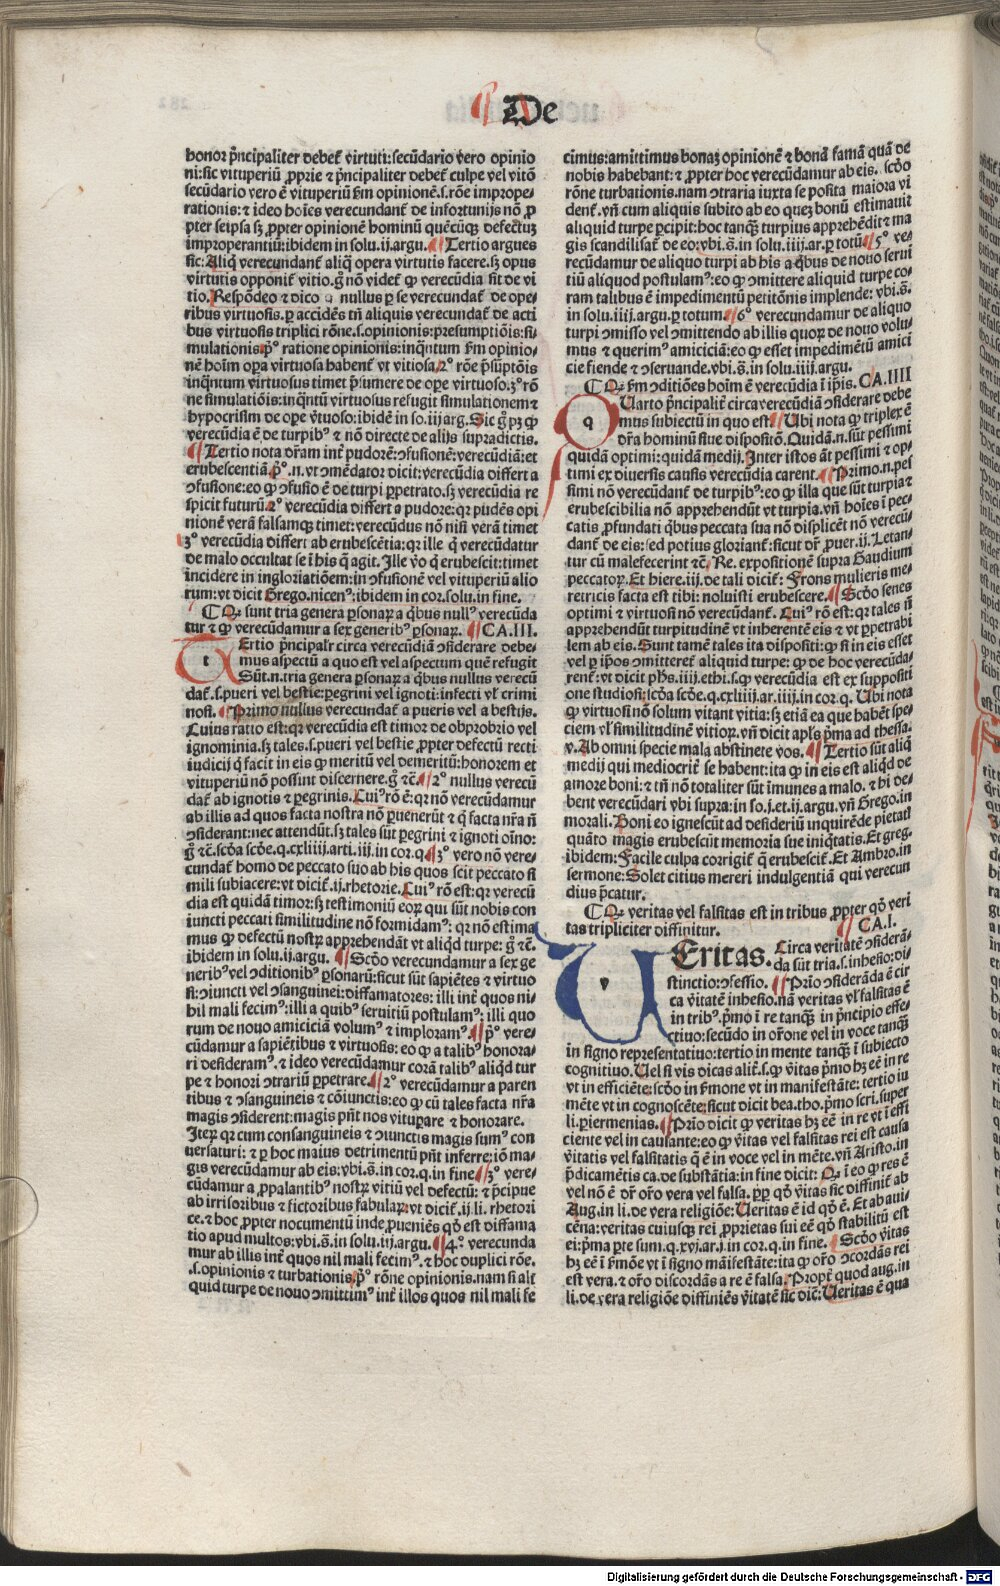 De
honor p̃ncipaliter debet᷑ virtuti: secũdario vero opinio
ni: sic vituperiũ ꝓprie ⁊ p̃ncipaliter debet᷑ culpe vel vitõ
secũdario vero ẽ vituperiũ fm opinionẽ.s.rõe imprope-
rationis: ⁊ ideo hoĩes verecundant᷑ de infortunijs nõ ꝓ
pter seipsa sꝫ ꝓpter opinionẽ hominũ quẽcũqꝫ defectus
improperantiũ: ibidem in solu.ij.argu. Tertio argues
sic: Aliq̃ verecundant᷑ aliq̃ opera virtutis facere. sꝫ opus
virtutis opponit᷑ vitio. g̃ nõ videt᷑ ꝙ verecũdia sit de vi
tio. Respõdeo ⁊ dico ꝙ nullus ꝑ se verecundat᷑ de ope-
ribus virtuosis. ꝑ accidẽs tñ aliquis verecundat᷑ de acti
bus virtuosis triplici rõne.s.opinionis: presumptiõis: si-
mulationis. p̊ ratione opinionis: inq̃ntum fm opinio-
nẽ hoĩm oꝑa virtuosa habent᷑ vt vitiosa. 2° rõe p̃sũptõis
inq̃ntum virtuosus timet p̃sumere de oꝑe virtuoso. 3° rõ
ne simulatiõis: inq̃ntũ virtuosus refugit simulationem ⁊
hypocrisim de oꝑe v̓tuoso: ibidẽ in so.iij arg. Sic g̃ pꝫ ꝙ
verecũdia ẽ de turpibꝰ ⁊ nõ directe de alijs supradictis.
Tertio nota dr̃am int᷑ pudorẽ: ↄfusionẽ: verecũdiã: et
erubescentiã. p̊.n. vt ↄmẽdator dicit: verecũdia differt a
ↄfusione: eo ꝙ ↄfusio ẽ de turpi ꝑpetrato. sꝫ verecũdia re
spicit futurũ. 2° verecũdia differt a pudore: qꝛ pudẽs opi
nionẽ verã falsamqꝫ timet: verecũdus nõ nisi verã timet
3° verecũdia differt ab erubescẽtia: qꝛ ille q̃ verecũdatur
de malo occultat se ĩ his q̃ agit. Ille v̓o q̃ erubescit: timet
incidere in ingloriatiõem: in ↄfusionẽ vel vituperiũ alio
rum: vt dicit Grego.nicenꝰ: ibidem in cor.solu.in fine.
Qꝛ sunt tria genera ꝑsonaꝝ a q̃bus nullꝰ verecũda
tur ⁊ ꝙ verecũdamur a sex generibꝰ ꝑsonaꝝ. CA.III.
t Ertio p̃ncipalr̃ circa verecũdiã ↄsiderare debe-
mus aspectũ a quo est vel aspectum quẽ refugit
Sũt.n.tria genera ꝑsonaꝝ a q̃bus nullus verecũ
dat᷑.s.pueri vel bestie: ꝑegrini vel ignoti: infecti vl̓ crimi
nosi. Primo nullus verecundat᷑ a pueris vel a bestijs.
Cuius ratio est: qꝛ verecũdia est timor de obprobrio vel
ignominia. sꝫ tales.s.pueri vel bestie ꝓpter defectũ recti
iudicij q̃ facit in eis ꝙ meritũ vel demeritũ: honorem et
vituperiũ nõ possint discernere. g̃ ⁊c̃. 2° nullus verecũ
dat᷑ ab ignotis ⁊ ꝑegrinis. Cuiꝰ rõ ẽ: qꝛ nõ verecũdamur
ab illis ad quos facta nostra nõ ꝑuenerũt ⁊ q̃ facta nr̃a ñ
ↄsiderant: nec attendũt. sꝫ tales sũt ꝑegrini ⁊ ignoti oĩno:
g̃ ⁊c̃. scd̃a scd̃e.q.cxliiij.arti.iij.in cor.q. 3° vero nõ vere-
cundat᷑ homo de peccato suo ab his quos scit peccato si
mili subiacere: vt dicit᷑.ij.rhetorie. Cuiꝰ rõ est: qꝛ verecũ
dia est quidã timor: sꝫ testimoniũ eoꝝ qui sũt nobis con
iuncti peccati similitudine nõ formidamꝰ: qꝛ nõ estima
mus ꝙ defectũ nostꝝ apprehendãt vt aliq̃d turpe: g̃ ⁊c̃.
ibidem in solu.ij.argu. Scd̃o verecundamur a sex ge
neribꝰ vel ↄditionibꝰ ꝑsonarũ: sicut sũt sapiẽtes ⁊ virtuo
si: ↄiuncti vel ↄsanguinei: diffamatores: illi int᷑ quos ni-
hil mali fecimꝰ: illi a quibꝰ seruitiũ postulamꝰ: illi quo
rum de nouo amiciciã volumꝰ ⁊ imploramꝰ. p̊ vere-
cũdamur a sapiẽtibus ⁊ virtuosis: eo ꝙ a talibꝰ honora-
ri desideramꝰ. ⁊ ideo verecũdamur corã talibꝰ aliq̃d tur
pe ⁊ honori ↄtrariũ ꝑpetrare. 2° verecũdamur a paren
tibus ⁊ ↄsanguineis ⁊ cõiunctis: eo ꝙ cũ tales facta nr̃a
magis ↄsiderent: magis pñt nos vituꝑare ⁊ honorare.
Iteꝝ qꝛ cum consanguineis ⁊ ↄiunctis magis sumꝰ con
uersaturi: ⁊ ꝑ hoc maius detrimentũ pñt inferre: iõ ma-
gis verecũdamur ab eis: vbi.s̃.in cor.q.in fine. 3° vere-
cũdamur a ꝓpalantibꝰ nostꝝ vitiũ vel defectũ: ⁊ p̃cipue
ab irrisoribus ⁊ fictoribus fabulaꝝ: vt dicit᷑.ij.li.rhetori
ce. ⁊ hoc ꝓpter nocumentũ inde ꝓueniẽs qð est diffama
tio apud multos: vbi.s̃.in solu.iij.argu. 4° verecunda
mur ab illis int᷑ quos nil mali fecimꝰ. ⁊ hoc duplici rõe.
.s.opinionis ⁊ turbationis. p̊ rõne opinionis. nam si alt᷑
quid turpe de nouo ↄmittimꝰ int᷑ illos quos nil mali fe
cimus: amittimus bonaꝫ opinionẽ ⁊ bonã famã quã de
nobis habebant: ⁊ ꝓpter hoc verecũdamur ab eis. scd̃o
rõne turbationis. nam ↄtraria iuxta se posita maiora vi
dent᷑. vñ cum aliquis subito ab eo queꝫ bonũ estimauit
aliquid turpe ꝑcipit: hoc tanqꝫ turpius apprehẽdit ⁊ ma
gis scandilisat᷑ de eo: vbi.s̃.in solu.iiij.ar.ꝑ totũ. 5° ve-
recũdamur de aliquo turpi ab his a q̃bus de nouo serui
tiũ aliquod postulamꝰ: eo ꝙ ↄmittere aliquid turpe co-
ram talibus ẽ impedimentũ petitõnis implende: vbi.s̃.
in solu.iiij.argu.ꝑ totum. 6° verecundamur de aliquo
turpi ↄmisso vel ↄmittendo ab illis quoꝝ de nouo volu-
mus ⁊ querimꝰ amiciciã: eo ꝙ esset impedimẽtũ amici
cie fiende ⁊ ↄseruande. vbi.s̃.in solu.iiij.argu.
Qꝛ fm ↄditiões hoĩm ẽ verecũdia ĩ ip̃is. CA.IIII
q Uarto p̃ncipalit᷑ circa verecũdiã ↄsiderare debe
mus subiectũ in quo est. Ubi nota ꝙ triplex ẽ
dr̃a hominũ siue dispositõ. Quidã.n.sũt pessimi
quidã optimi: quidã medij. Inter istos ãt pessimi ⁊ op-
timi ex diuersis causis verecũdia carent. Primo.n.pes
simi nõ verecũdant᷑ de turpibꝰ: eo ꝙ illa que sũt turpia ⁊
erubescibilia nõ apprehendũt vt turpia. vñ hoĩes ĩ pec-
catis ꝓfundati q̃bus peccata sua nõ displicẽt nõ verecũ-
dant᷑ de eis: sed potius gloriant᷑: sicut dr̃ ꝓuer.ij. Letan-
tur cũ malefecerint ⁊c̃. Re. expositionẽ supra Gaudium
peccatoꝝ. Et hiere.iij.de tali dicit᷑: Frons mulieris me-
retricis facta est tibi: noluisti erubescere. Scd̃o senes
optimi ⁊ virtuosi nõ verecũdant᷑. Cuiꝰ rõ est: qꝛ tales ñ
apprehendũt turpitudinẽ vt inherentẽ eis ⁊ vt ꝑpetrabi
lem ab eis. Sunt tamẽ tales ita dispositi: ꝙ si in eis esset
vel ꝑ ip̃os ↄmitteret᷑ aliquid turpe: ꝙ de hoc verecũda-
rent᷑: vt dicit ph̃s.iiij.ethi.s.ꝙ verecũdia est ex suppositi
one studiosi: scd̃a scd̃e.q.cxliiij.ar.iiij.in cor.q. Ubi nota
ꝙ virtuosi nõ solum vitant vitia: sꝫ etiã ea que habẽt spe-
ciem vl̓ similitudinẽ vitioꝝ. vñ dicit apl̓s p̃ma ad thessa-
v. Ab omni specie mala abstinete vos. Tertio sũt aliq̃
medij qui mediocrit᷑ se habent: ita ꝙ in eis est aliq̃d de
amore boni: ⁊ tñ nõ totaliter sũt imunes a malo. ⁊ hi de-
bent verecũdari vbi supra: in so.j.et.ij.argu. vñ Grego.in
morali. Boni eo ignescũt ad desideriũ inquirẽde pietati
quãto magis erubescũt memoria sue iniq̃tatis. Et greg.
ibidem: Facile culpa corrigit᷑ q̃ erubescit᷑. Et Ambro.in
sermone: Solet citius mereri indulgentiã qui verecun
dius p̃catur.
Qꝛ veritas vel falsitas est in tribus ꝓpter qð veri
tas tripliciter diffinitur. CA.I.
v Eritas. Circa veritatẽ ↄsiderã-
da sũt tria.s.inhesio: di-
stinctio: ↄfessio. Prio ↄsiderãda ẽ cir
ca v̓itatẽ inhesio. nã veritas vl̓ falsitas ẽ
in tribꝰ. p̃mo ĩ re tanqꝫ in p̃ncipio effe-
ctiuo: secũdo in or̃one vel in voce tanqꝫ
in signo representatiuo: tertio in mente tanqꝫ ĩ subiecto
cognitiuo. Uel si vis dicas alit᷑.s.ꝙ v̓itas p̃mo hꝫ eẽ in re
vt in efficiẽte: scd̃o in s̓mone vt in manifestãte: tertio in
mẽte vt in cognoscẽte: sicut dicit bea.tho.p̃mo scri.super
li.periermenias. Prio dicit ꝙ veritas hꝫ eẽ in re vt ĩ effi
ciente vel in causante: eo ꝙ v̓itas vel falsitas rei est causa
v̓itatis vel falsitatis q̃ ẽ in voce vel in mẽte. vñ Aristo.in
p̃dicamẽtis ca.de substãtia: in fine dicit: Qꝛ ĩ eo ꝙ res ẽ
vel nõ ẽ dr̃ or̃o vera vel falsa. ꝓp̓ qð v̓itas sic diffinit᷑ ab
Aug.in li.de vera religiõe: Ueritas ẽ id qð ẽ. Et ab aui-
cẽna: veritas cuiusqꝫ rei ꝓprietas sui eẽ qð stabilitũ est
ei: p̃ma ꝑte sum.q.xvj.ar.j.in cor.q.in fine. Scd̃o v̓itas
hꝫ eẽ ĩ s̓mõe vt ĩ signo mãifestãte: ita ꝙ or̃o ↄcordãs rei
est vera. ⁊ or̃o discordãs a re ẽ falsa. Propt᷑ quod aug.in
li.de vera religiõe diffiniẽs v̓itatẽ sic dic᷑: Ueritas ẽ qua
Digitalisierung gefördert durch die Deutsche Forschungsgemeinschaft - DFG